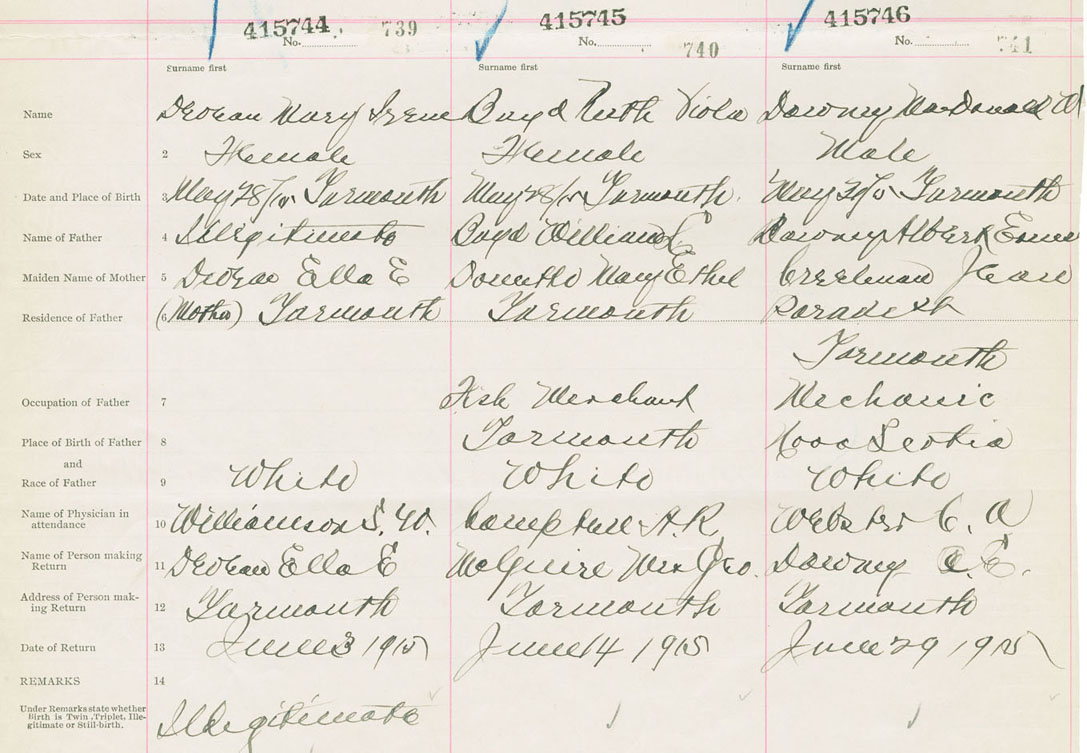 415744 739 415745 740 415746 741
No. No. No.
Surname first Surname first Surname first
Name Mary Irene Boyd Ruth Viola Downey MacDonald A
Sex 2 Female Female Male
Date and Place of Birth 3 May 28/15 Yarmouth May 28/15 Yarmouth May 29/15 Yarmouth
Name of Father 4 Illegitimate Boyd William Downey Albert
Maiden Name of Mother 5 Ella E Mary Ethel Creelman Jean
Residence of Father 6 (Mother) Yarmouth Yarmouth Parade St
Yarmouth
Occupation of Father 7 Fish Merchant Mechanic
Place of Birth of Father 8 Yarmouth Nova Scotia
and
Race of Father 9 White White White
Name of Physician in
attendance 10 Williamson S. W. Campbell A. R. Webster C. A
Name of Person making
Return 11 Ella E McGuire Mrs Geo. Downey E.
Address of Person mak-
ing Return 12 Yarmouth Yarmouth Yarmouth
Date of Return 13 June 3 1915 June 14 1915 June 29 1915
REMARKS 14
Under Remarks state whether
Birth is Twin, Triplet, Ille-
gitimate or Still-birth. Illegitimate